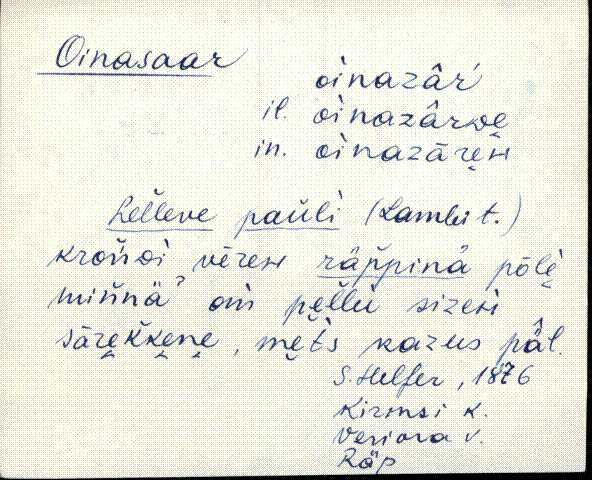 Oinasaar
oìnazâŕ
il. oìnazârᴅe̮
in. oìnazāre̮ʜ
Lelleve paùli (Lambit.)
kroǹᴅi vēreʜ räp̀pinä pōle̮
miǹnä ᾽ oǹ pe̮llu sizeʜ
sāre̮k̀ke̮ne̮, me̮t̀s kazus pâl.
S. Helfer, 1876
Kirmsi k.
Veriora v.
Räp